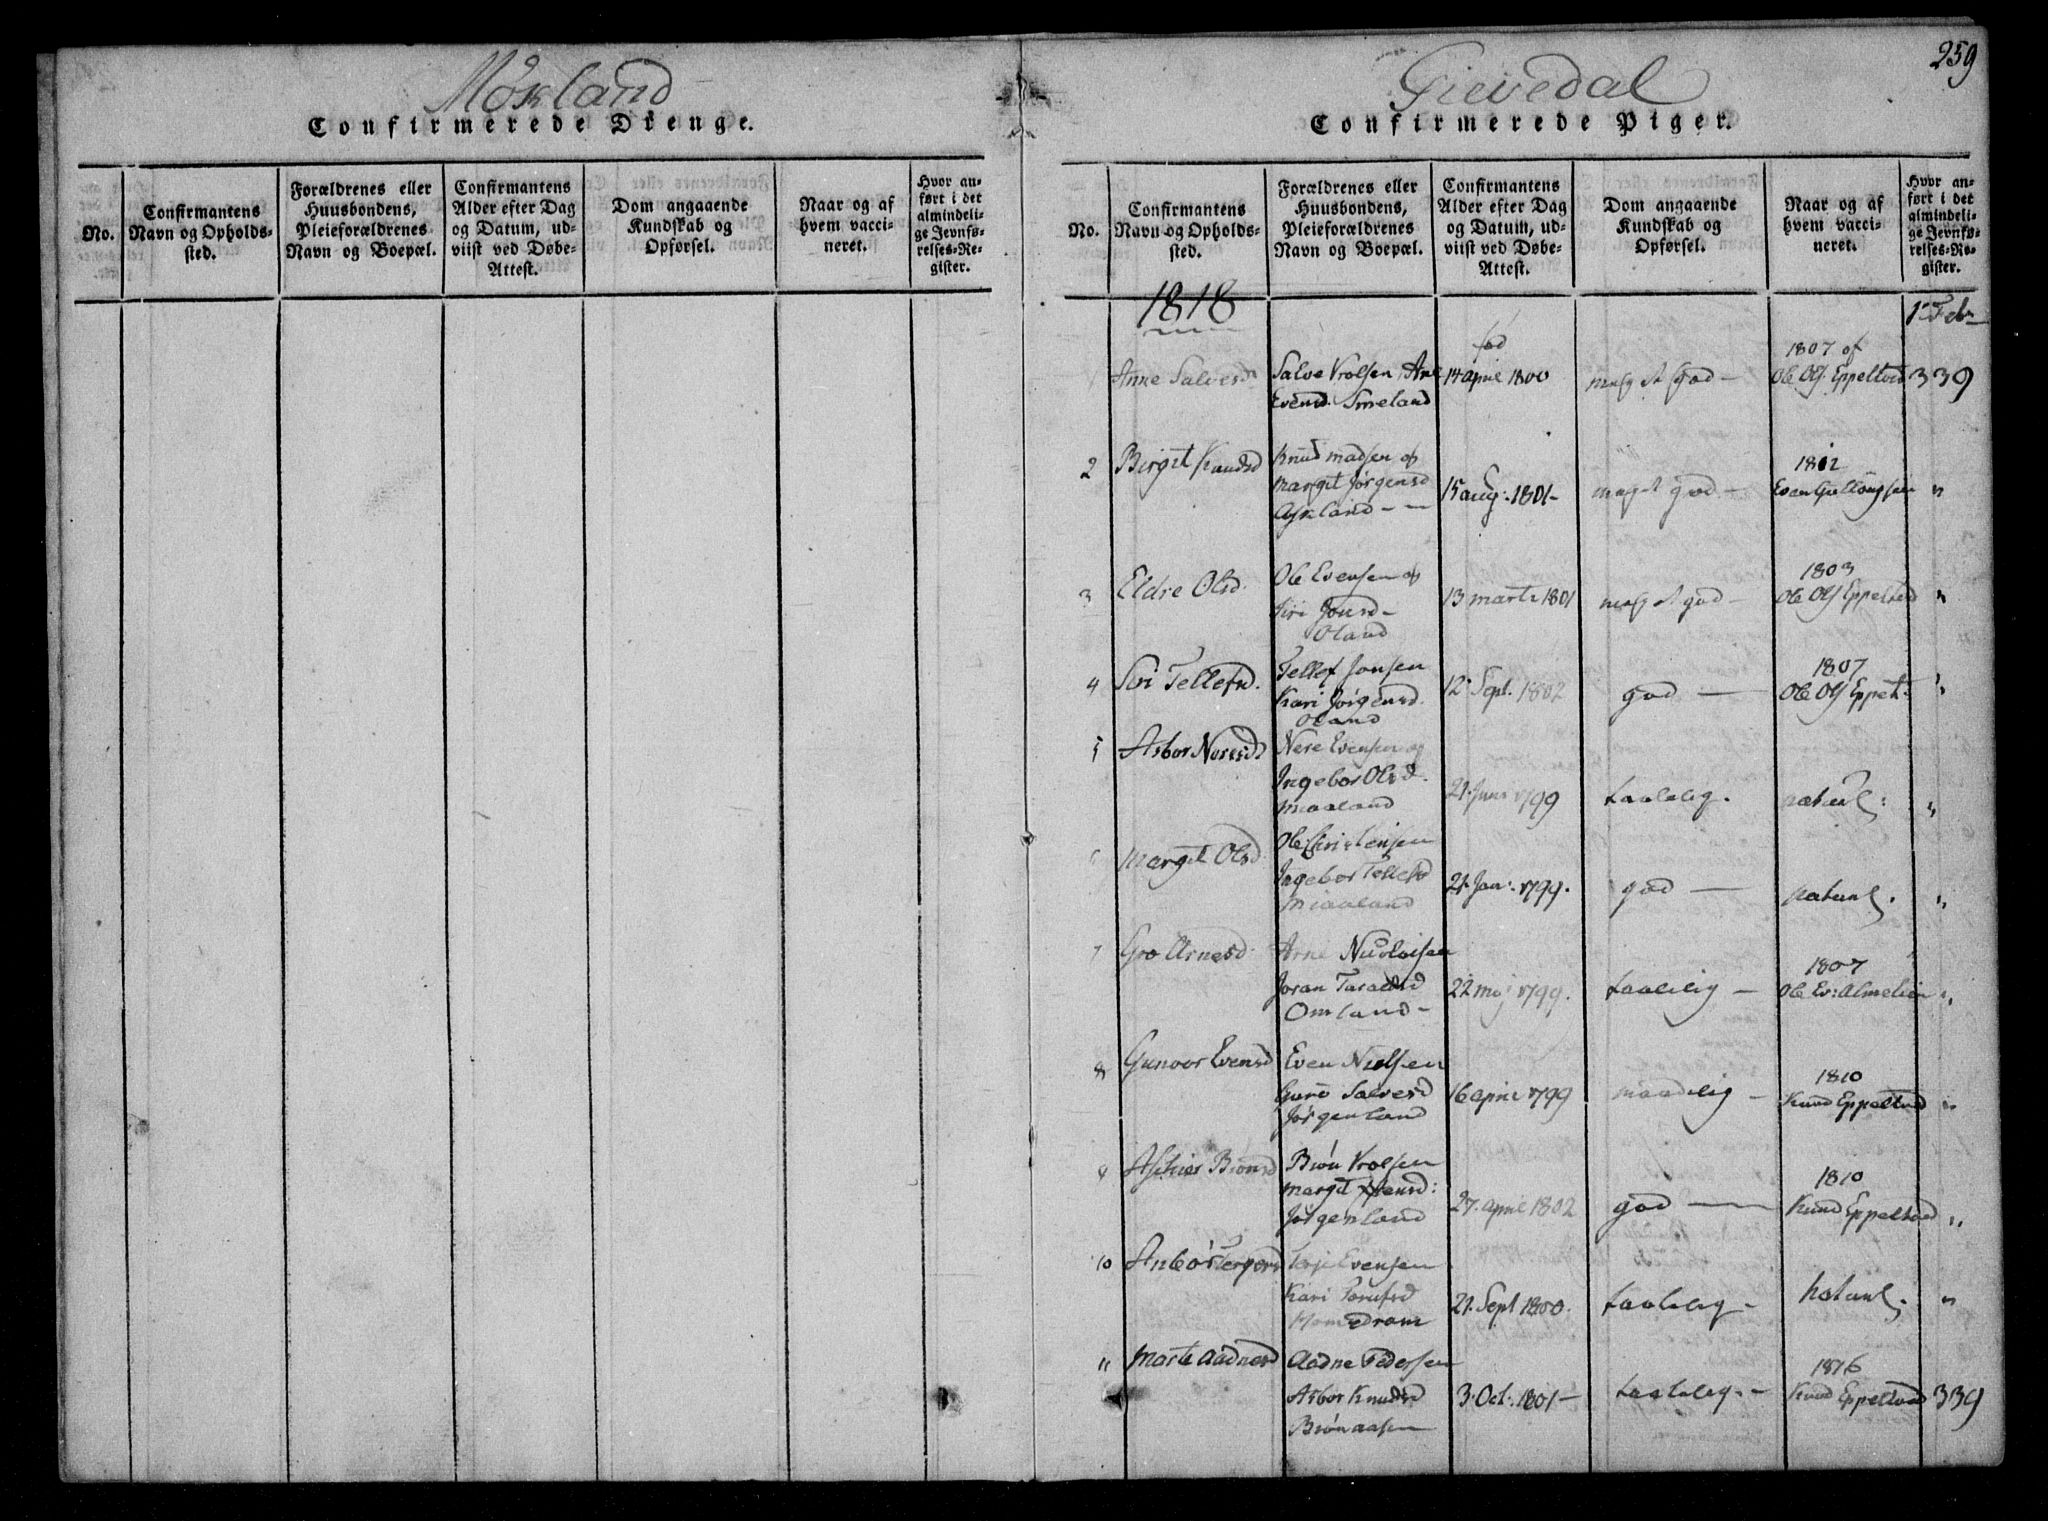 Mörland
Confirmerede Drenge.
No.
Confirmantens
Navn og Opholds-
sted.
Forældrenes eller
Huusbondens,
Pleieforældrenes
Navn og Boepæl.
Confirmantens
Alder efter Dag
og Datum, ud-
viist ved Døbe-
Attest.
Dom angaaende
Kundskab og
Opførsel.
Naar og af
hvem vacci-
neret.
Hvor an-
ført i det
almindeli-
ge Jevnfø-
relses-Re-
gister.
259
Gievedal
Confirmerede Piger.
No.
Confirmantens
Navn og Opholds-
sted.
Forældrenes eller
Huusbondens,
Pleieforældrenes
Navn og Boepæl.
Confirmantens
Alder efter Dag
og Datum, ud-
viist ved Døbe-
Attest.
Dom angaaende
Kundskab og
Opførsel.
Naar og af
hvem vacci-
neret.
Hvor an-
ført i det
almindeli-
ge Jevnfø-
relses-Re-
gister.
1818
1 Feb
1 Anne Salvesd
Salve Vrolsen, Ane
Evensd. Smeland
fød
14 april 1800
meget god —
1807 af
Ole Ols. Eppeltved
339
2 Birgit Knudsd
Knud Madsen og
Margit Jörgensd
Askland — —
15 aug: 1801 —
meget god —
1812
Even Guttormsen
"
3 Eldre Olsd.
Ole Evensen og
Siri Jonsd —
Oland
13 marts 1801
meget god —
1803
Ole Ols Eppeltved
"
4 Siri Tellefsd.
Tellef Jonsen
Kari Jörgensd.
Oland
12 Sept. 1802
god —
1807
Ole Ols Eppelt:
"
5 Asbor Neresd
Nere Evensen og
Ingebor Olsd.
Miaaland
21. Juni 1799
taalelig.
naturl:
"
6 Margit Olsd
Ole Christensen
Ingebor Tellefsd
Miaaland
21. Jan: 1799.
god —
naturl.
"
7 Gro Arnesd
Arne Nicolaisen
Joran Taraldsd
Omland —
22 maj 1799.
taalelig —
1807
Ole Ev: Almelien
"
8 Gunvor Evensd
Even Nielsen
Guro Salvesd
Jörgenland
16 april 1799
maadelig —
1810
Knud Eppeltved
"
9
Biön Vrolsen
Margit
Jörgenland
27. april 1802
god —
1810
Knud Eppeltved
"
10
Terje Evensen
Kari
21. Sept 1800.
taalelig —
naturl.
"
11 Marte Aadnesd
Aadne Pedersen
Asbor Knudsd
Biönaasen
3. Oct: 1801 —
taalelig. —
1816
Knud Eppeltved
339